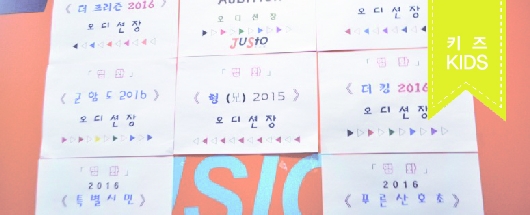 《 더 프리즌 2016 》
오디션장
AUDITION
오디션장
JUStO
오디션장
키즈
KIDS
《 군함도 2016 》
오디션장
《 형(兄) 2015 》
오디션장
《 더킹 2016 》
오디션장
2016
《 특별시민 》
2016
《 푸른산호초 》